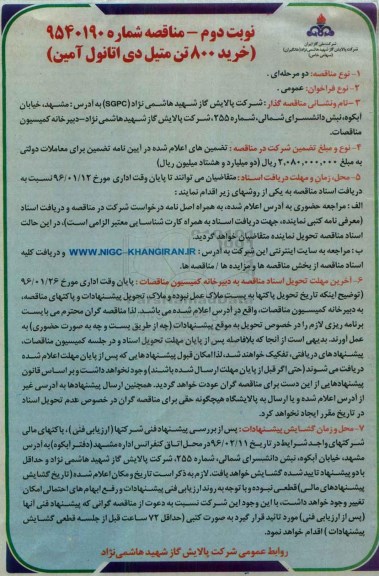 شرکت ملی گاز ایران
شرکت پالایش گاز شهید هاشمی نژاد (خانگیران)
(سهامی خاص)
نوبت دوم - مناقصه شماره ۹۵۴۰۱۹۰
(خرید ۸۰۰ تن متیل دی اتانول آمین)
۱- نوع مناقصه: دو مرحله‌ای .
۲- نوع فراخوان: عمومی .
۳- نام ونشانی مناقصه گذار : شرکت پالایش گاز شهید هاشمی نژاد (SGPC) به آدرس : مشهد، خیابان
آبکوه، نبش دانشسرای شمالی، شماره ۲۵۵، شرکت پالایش گاز شهید هاشمی نژاد - دبیرخانه کمیسیون
مناقصات.
۴- نوع و مبلغ تضمین شرکت در مناقصه : تضمین های اعلام شده در آیین نامه تضمین برای معاملات دولتی
به مبلغ ۲,۰۸۰,۰۰۰,۰۰۰ ریال (دو میلیارد و هشتاد میلیون ریال)
۵- محل، زمان و مهلت دریافت اسناد : متقاضیان می توانند تا پایان وقت اداری مورخ ۹۶/۰۱/۱۲ نسبت به
دریافت اسناد مناقصه به یکی از روشهای زیر اقدام نمایند :
الف : مراجعه حضوری به آدرس اعلام شده، به همراه اصل نامه درخواست شرکت در مناقصه و دریافت اسناد
(معرفی نامه کتبی نماینده، جهت دریافت اسناد به همراه کارت شناسایی معتبر الزامی است)، در این حالت
اسناد مناقصه تحویل نماینده متقاضیان خواهد گردید.
ب : مراجعه به سایت اینترنتی این شرکت به آدرس : WWW.NIGC-KHANGIRAN.IR و دریافت کلیه
اسناد مناقصه از بخش مناقصه ها و مزایده ها / مناقصه ها.
۶- آخرین مهلت تحویل اسناد مناقصه به دبیرخانه کمیسیون مناقصات : پایان وقت اداری مورخ ۹۶/۰۱/۲۶
(توضیح اینکه تاریخ تحویل پاکتها به پست ملاک عمل نبوده و ملاک، تحویل پیشنهادات و پاکتهای مناقصه،
به دبیرخانه کمیسیون مناقصات، واقع در آدرس اعلام شده می باشد. لذا مناقصه گران محترم می بایست
برنامه ریزی لازم را در خصوص تحویل به موقع پیشنهادات (چه از طریق پست و چه به صورت حضوری) به
عمل آورند. بدیهی است از آنجا که بلافاصله پس از پایان مهلت تحویل اسناد و در جلسه کمیسیون مناقصات،
پیشنهادهای دریافتی، تفکیک خواهند شد، لذا امکان قبول پیشنهادهایی که پس از پایان مهلت اعلام شده
دریافت می شوند (حتی اگر قبل از پایان مهلت ارسال شده باشند) وجود نخواهد داشت و بر اساس قانون
پیشنهادهایی از این دست برای مناقصه گران عودت خواهد گردید. همچنین ارسال پیشنهادها به آدرسی غیر
از آدرس اعلام شده و یا ارسال به پالایشگاه هیچگونه حقی برای مناقصه گران در خصوص عدم تحویل اسناد
در تاریخ مقرر ایجاد نخواهد کرد.
۷- محل و زمان گشایش پیشنهادات : پس از بررسی پیشنهاد فنی شرکتها (ارزیابی فنی)، پاکتهای مالی
شرکتهای واجد شرایط در تاریخ ۹۶/۰۲/۱۱ در محل اتاق کنفرانس اداره مشهد (دفتر آبکوه) به آدرس
مشهد، خیابان آبکوه، نبش دانشسرای شمالی، شماره ۲۵۵، شرکت پالایش گاز شهید هاشمی نژاد و حداقل
با دو پیشنهاد تایید شده گشایش خواهد یافت. لازم به ذکر است تاریخ و مکان اعلام شده (تاریخ گشایش
پیشنهادهای مالی) قطعی نبوده و با توجه به روند ارزیابی فنی پیشنهادات و رفع ابهام های احتمالی امکان
تغییر وجود خواهد داشت، با این وجود این شرکت نسبت به دعوت از مناقصه گرانی که پیشنهاد فنی آنها
(پس از ارزیابی فنی) مورد تائید قرار گیرد به صورت کتبی (حداقل ۷۲ ساعت قبل از جلسه قطعی گشایش
پیشنهادات ) اقدام خواهد نمود.
روابط عمومی شرکت پالایش گاز شهید هاشمی‌نژاد